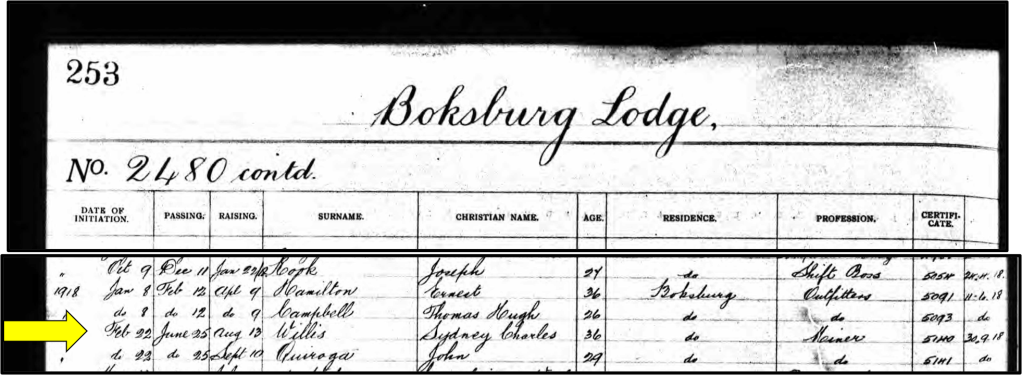 253
Boksburg Lodge,
No. 2480 contd.
DATE OF INITIATION. PASSING. RAISING. SURNAME. CHRISTIAN NAME. AGE. RESIDENCE. PROFESSION. CERTIFICATE.
" Oct 9 Dec 11 Jan 22/18 Hook Joseph 27 do Shift Boss
1918 Jan 8 Feb 12 Apl 9 Hamilton Ernest 36 Boksburg Outfitters 5091 11-6.18
do 8 do 12 do 9 Campbell Thomas Hugh 26 do do 5093 do
Feb 22 June 25 Aug 13 Willis Sydney Charles 36 do Miner 5140 30.9.18
" do 22 do 25 Sept 10 Quiroga John 29 do do 5141 do